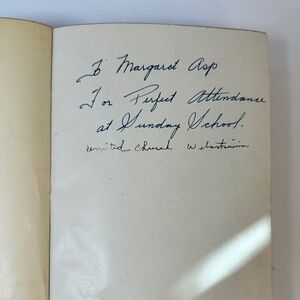 To Margaret Asp
For Perfect Attendance
at Sunday School.
united church